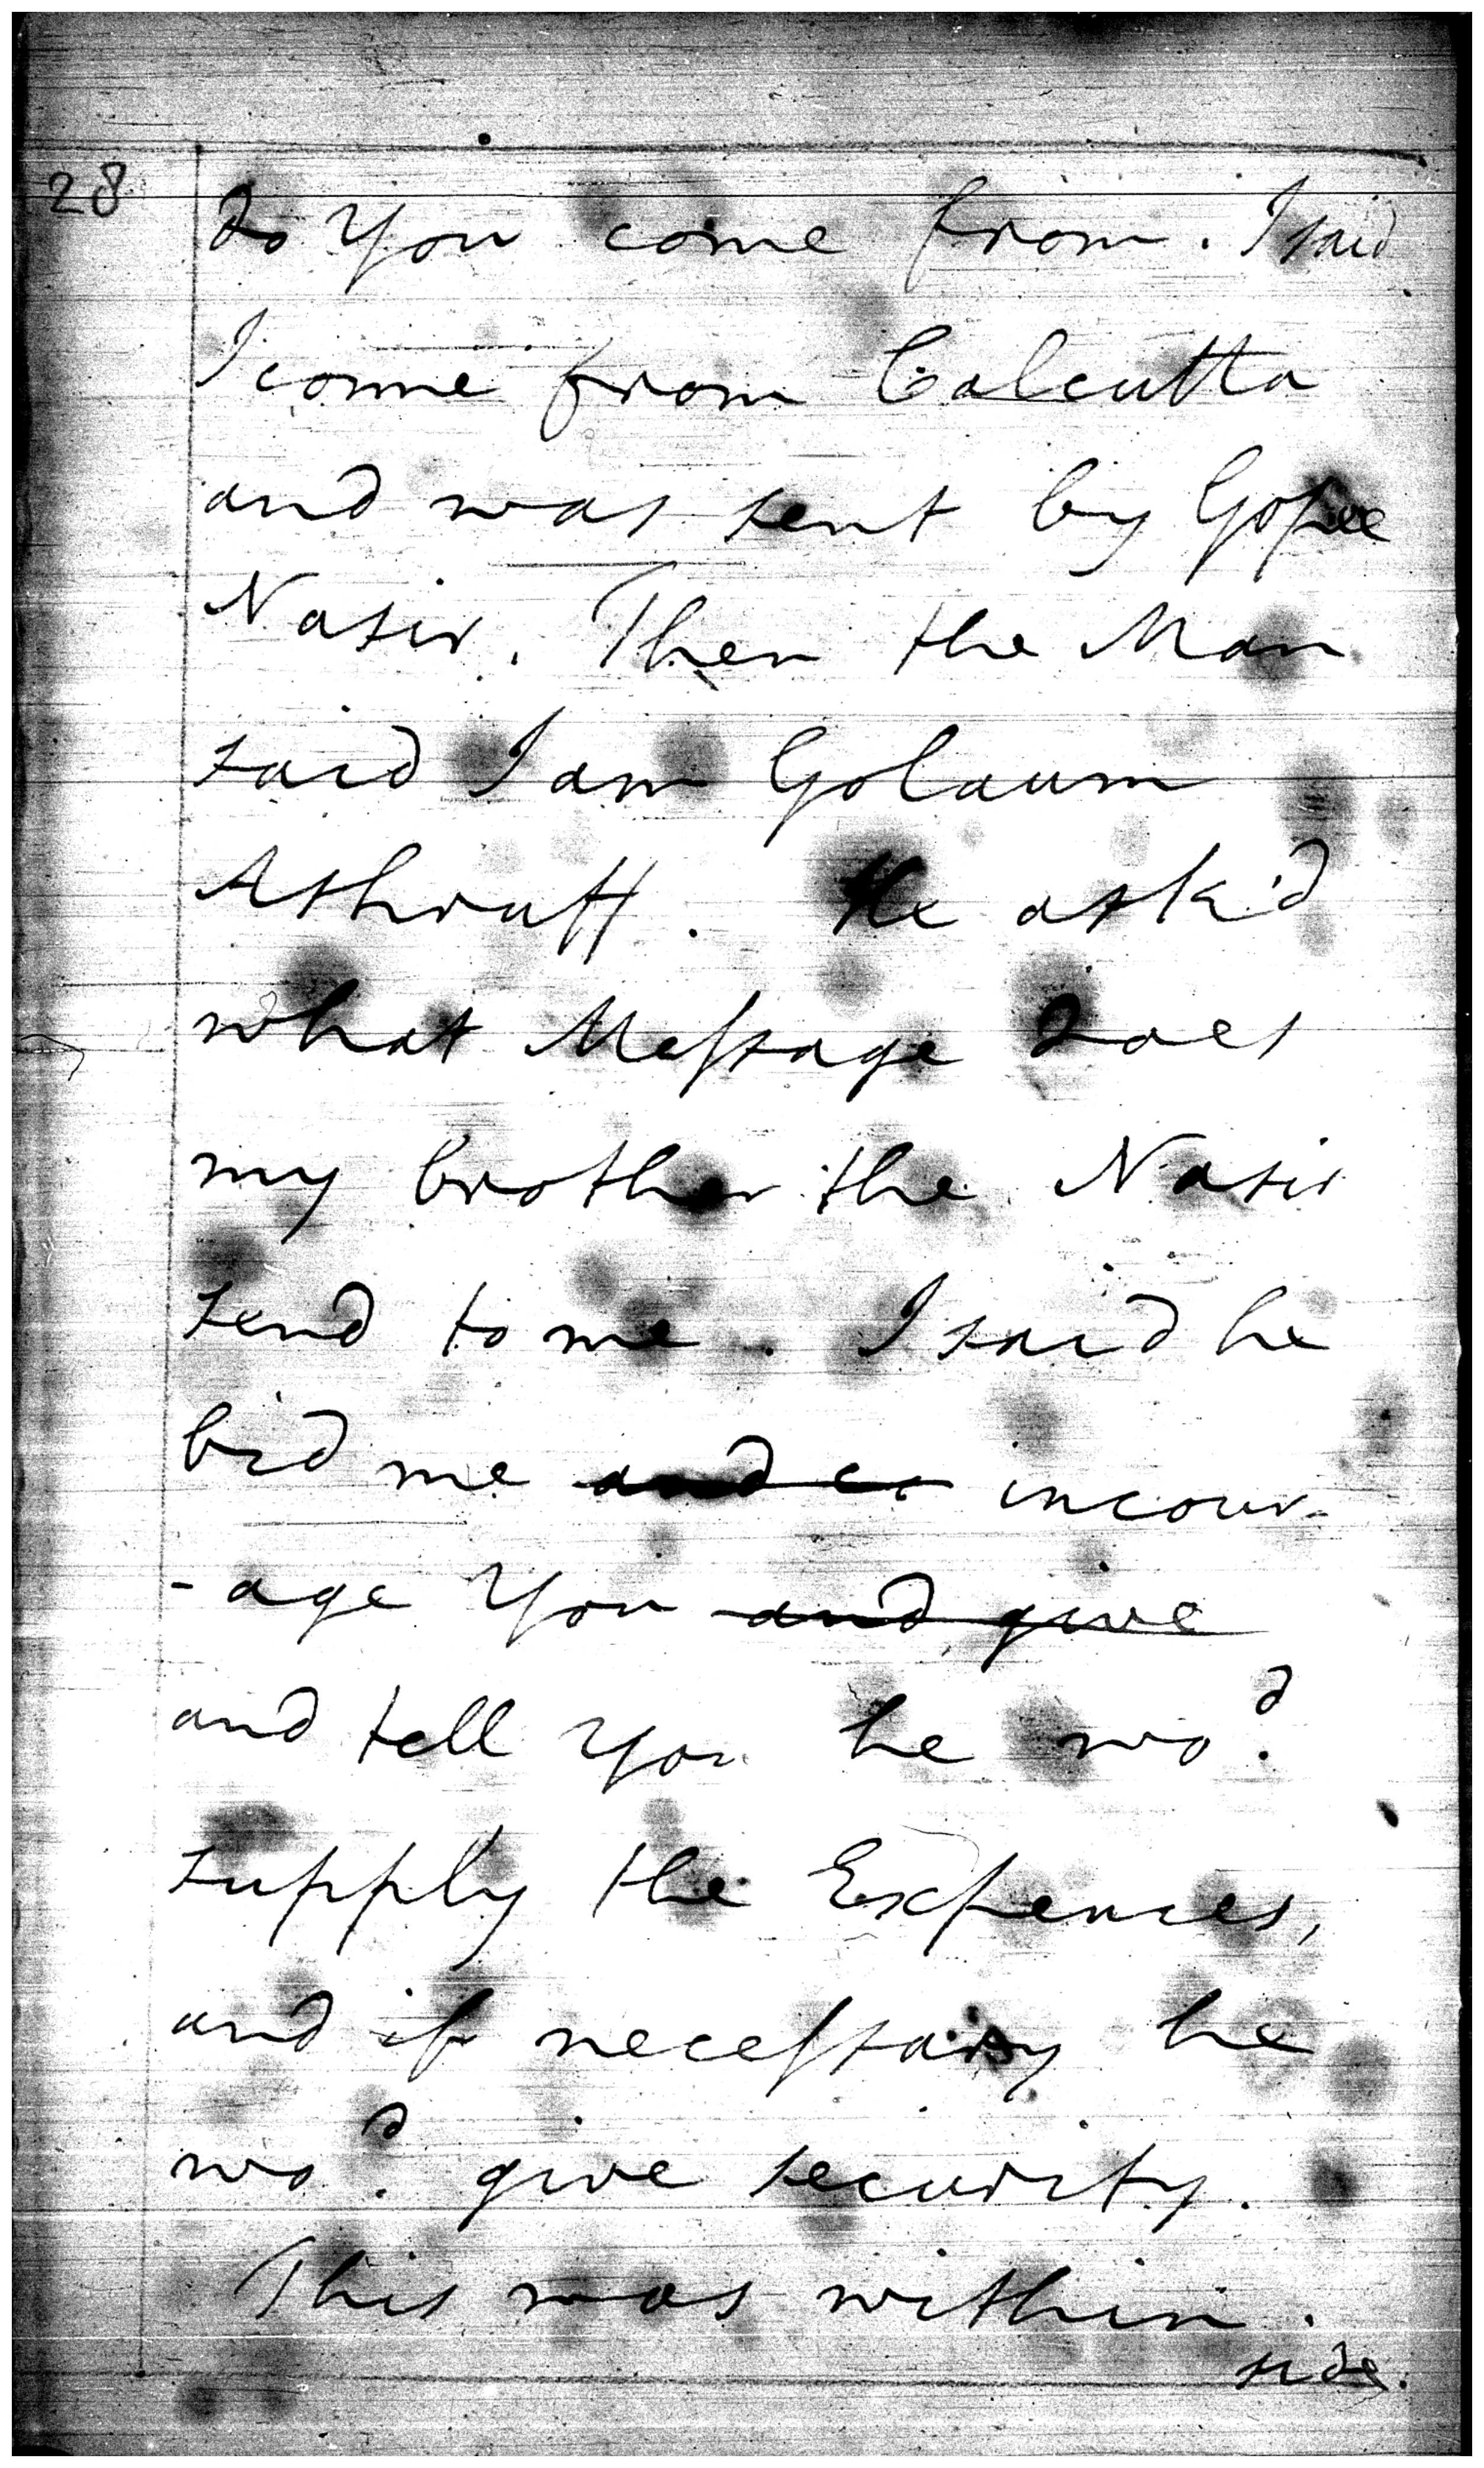 28
do You come from. I said
I come from Calcutta
and was sent by Gopee
Nasir. Then the Man
said I am Golaum
Ashruff. He ask'd
what Message does
my brother the Nasir
send to me. I said he
bid me and incour-
-age You and give
and tell You he wod.
supply the Expences,
and if necessary he
wod. give security.
This was within.
side.